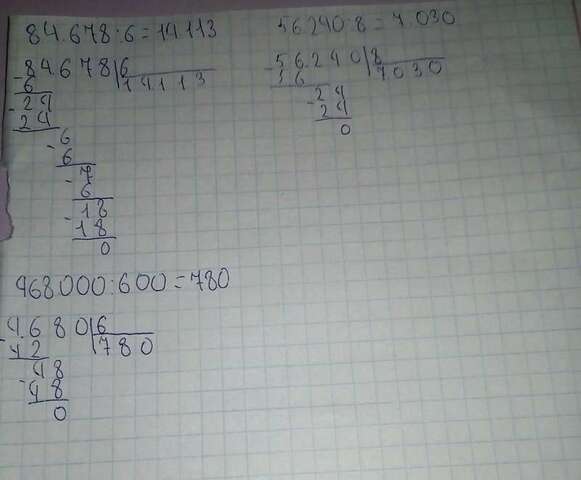 84.678:6=14.113
84.678|6
6
14113
-24
24
-6
6
-7
6
-18
18
0
56.240:8=7.030
-56.240|8
56
7030
-24
24
0
468.000:600=780
4.680|6
-42
780
48
-48
0